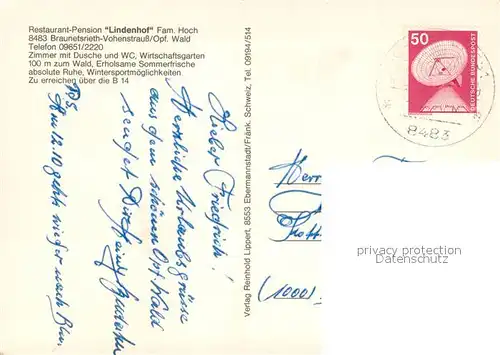 Restaurant-Pension "Lindenhof" Fam. Hoch
8483 Braunetsrieth-Vohenstrauß/Opf. Wald
Telefon 09651/2220
Zimmer mit Dusche und WC, Wirtschaftsgarten
100 m zum Wald, Erholsame Sommerfrische
absolute Ruhe, Wintersportmöglichkeiten.
Zu erreichen über die B 14
Lieber Friedrich!
Herzliche Urlaubsgrüße
aus dem schönen Opf. Wald
sendet Dir
PS.
Am 12.10 geht's wieder nach
Verlag Reinhold Lippert, 8553 Ebermannstadt/Fränk. Schweiz, Tel. 09194/514
50
DEUTSCHE BUNDESPOST
8483
Herr
(1000)
privacy protection